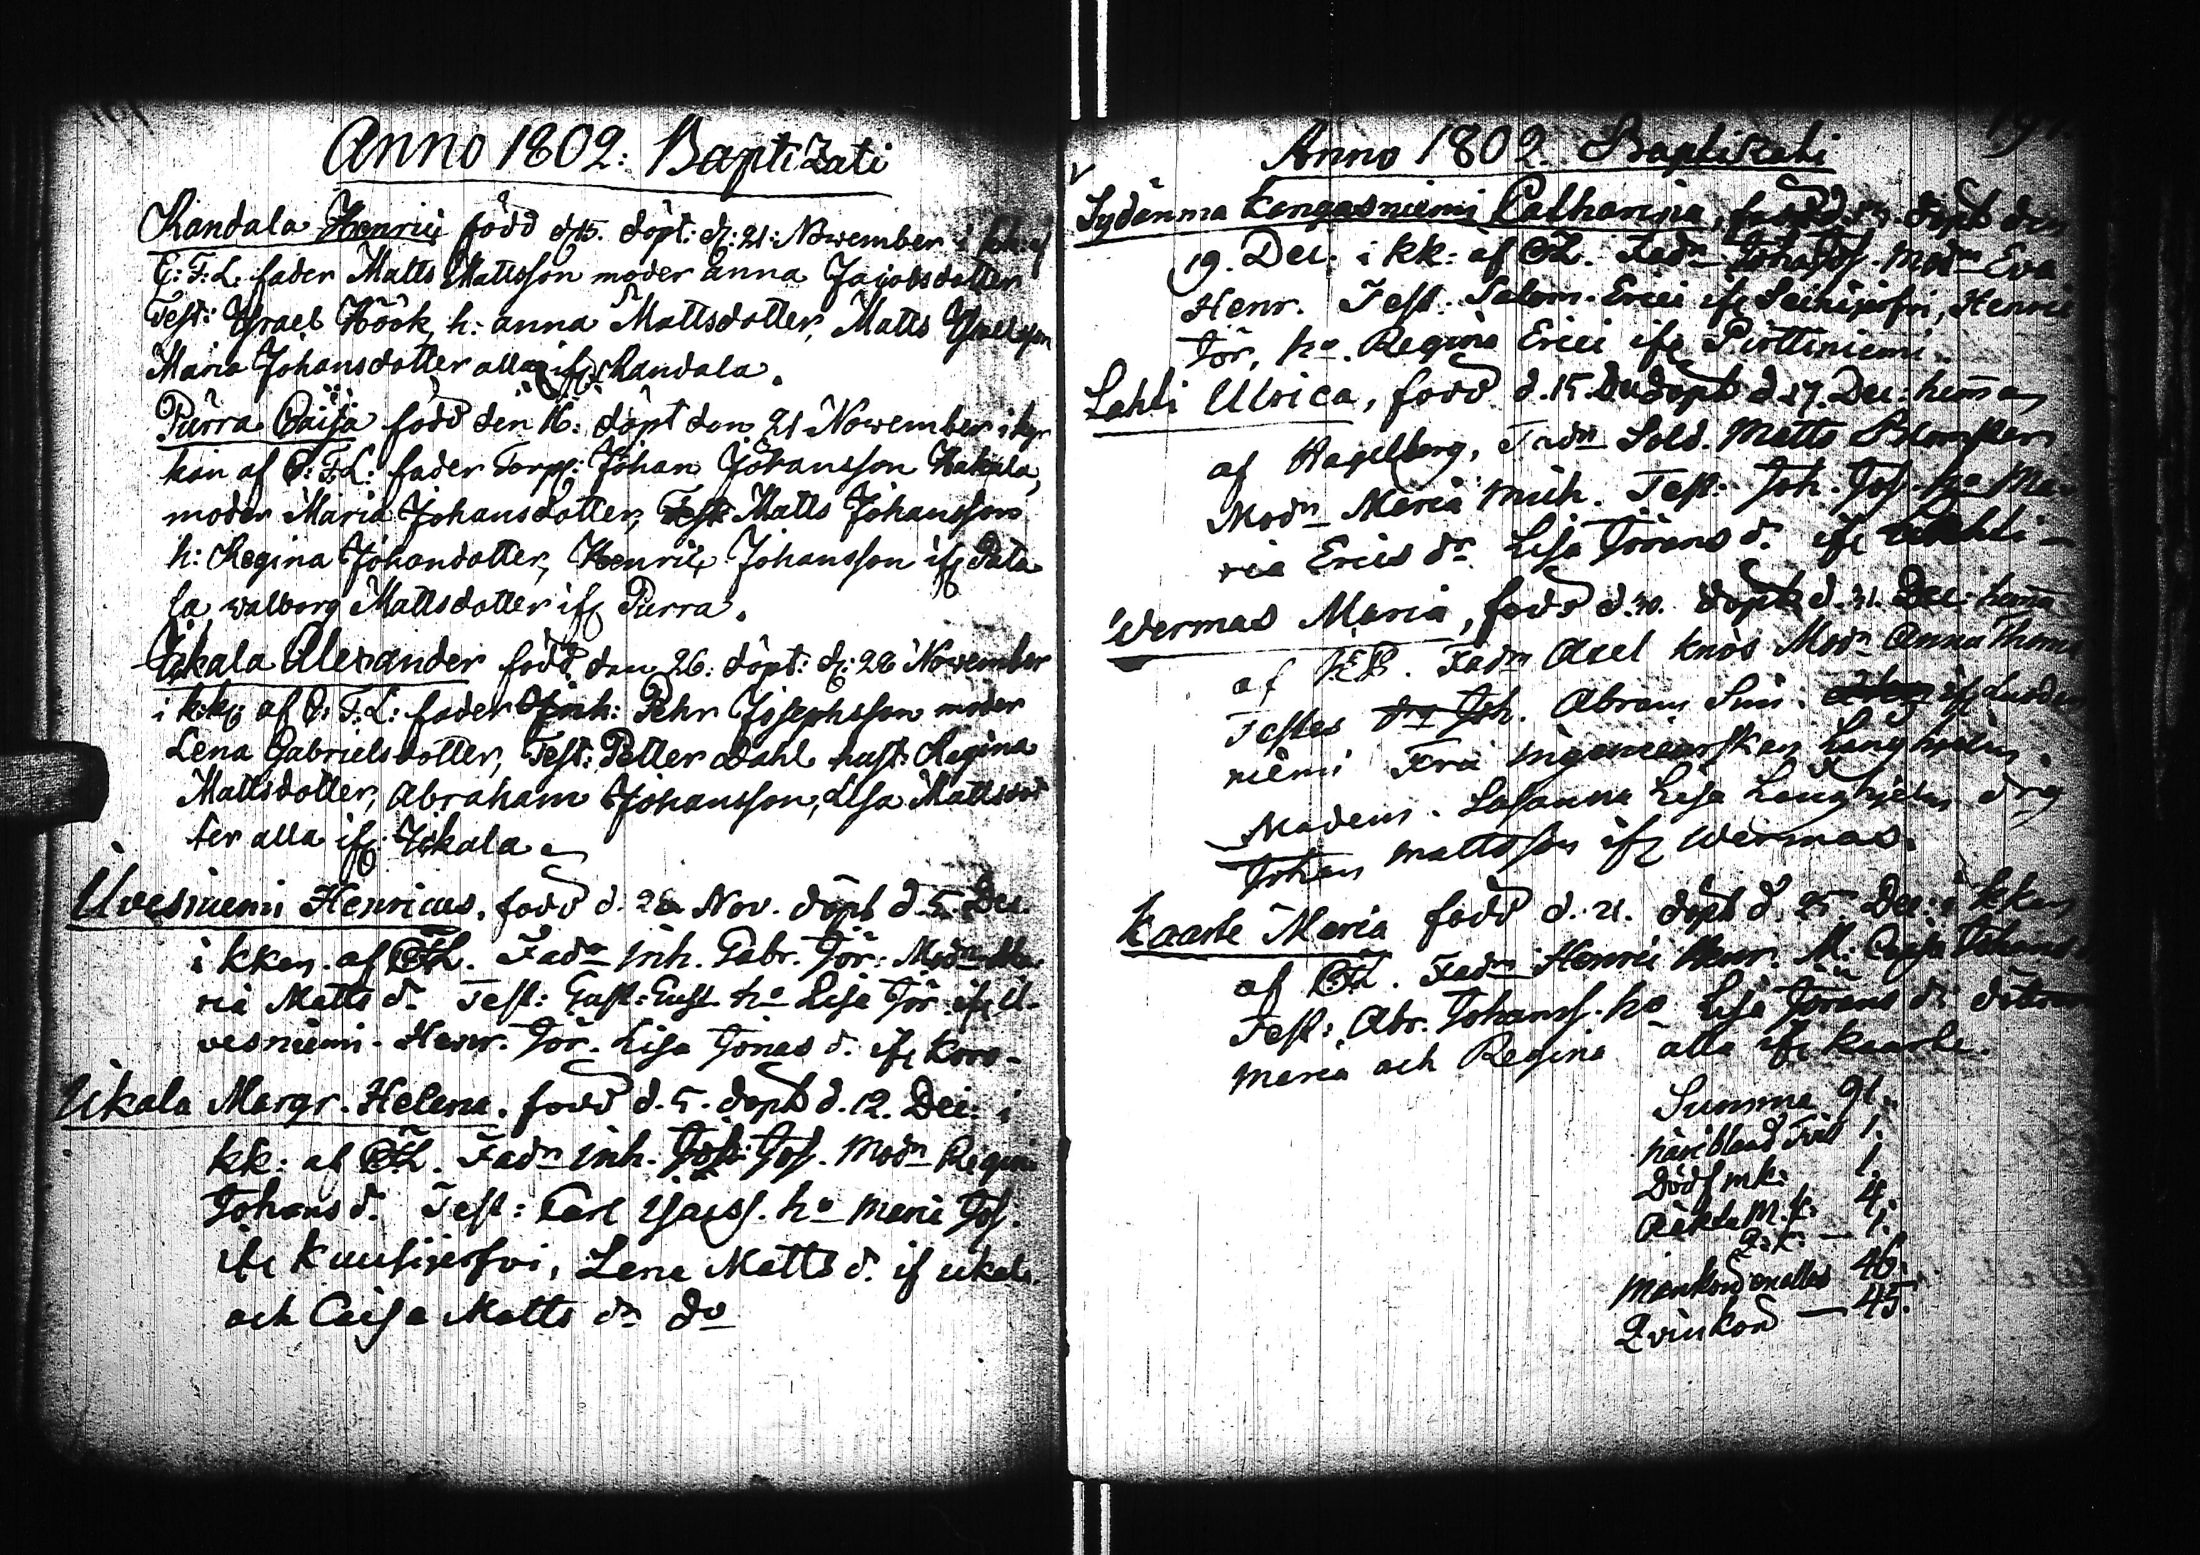 Anno 1802: Baptizati
Randala Henric född d. 15. döpt: d: 21: November i kk: af
C: F: L. fader Matts Mattsson moder anna Jacobsdotter
Test: Ysrael Höök, h: anna Mattsdotter, Matts Ysraelsson
Maria Johansdotter alla ifr. Randala.
Purra Caisa född den 16: döpt den 21 November i kyr
kan af C: F: L: fader Torp: Johan Johansson Hakala,
moder Maria Johansdotter, Test Matts Johansson
h: Regina Johandotter, Henric Johansson ifr
la walborg Mattsdotter ifr Purra.
Ukala Alexander född den 26: döpt: d: 28 November
i k:k: af C: F: L: fader Inh: Pehr Josephsson moder
Lena Gabrielsdotter, Test: Petter Dahl hust: Regina
Mattsdotter, Abraham Johansson, Lisa Mattsdot
ter alla ifr: Ukala
Uvesniemi Henricus, född d. 28 Nov. döpt d. 5. Dec.
i kkan. af CFL. Fadr inh. Gabr. Jör: Modr Ma
ria Matts d. Test: Gust: Gust ho Lisa Jör ifr U-
vesniemi - Henr. Jör. Lisa Jönas d. ifr
Ukala Margr. Helena. född d. 5. döpt d. 12. Dec. i
kk: af CFL. Fadr inh. Jos. Modr Regina
Johans d. Test: Carl ho Maria Jos.
ifr Kuusijerfvi, Lena Matts d. if ukala
och Caisa Matts dr do
Anno 1802. Baptisati
Sydänma Kangasniemi Catharina, född döpt den
19. Dec. i kk: af CFL. Fadr Modr Eva
Henr. Test. Salom. Erici ifr Seinijerfvi, Henric
Jör, ho. Regina Erici ifr Pirttiniemi.
Lahti Ulrica, född d. 15. Dec döpt d. 17. Dec: hemma
af Hagelberg, Fadr Sold. Matts
Modr Maria Mich. Test: Joh. Jos. ho Ma-
ria Erics dr Lisa Jörans d. ifr Lahti
Wermas Maria, född d. 30. döpt d. 31. Dec: hemma
af Fadr Axel Knös Modr Anna Thoms
Testes Joh. Abram Simi. ifr
niemi Fru ingenieurskan Langhjelm.
Madem. Susanna Lisa Langhjelm drg
Johan Mattsson ifr Wermas.
Kaarle Maria född d. 21. döpt d. 25. Dec: i kkan
af CFL. Fadr Henric Henr. M: Caisa Johans d
Test: Abr. Johanss. ho Lisa Jörans d: döttrar
Maria och Regina alla ifr Kaarle.
Summa 91.
häribland Tvil 1.
Dödf mk: 1.
Oäkta M. k: 4.
Q: k: — 1.
Mankön omattas 46.
Qvinkön — 45.